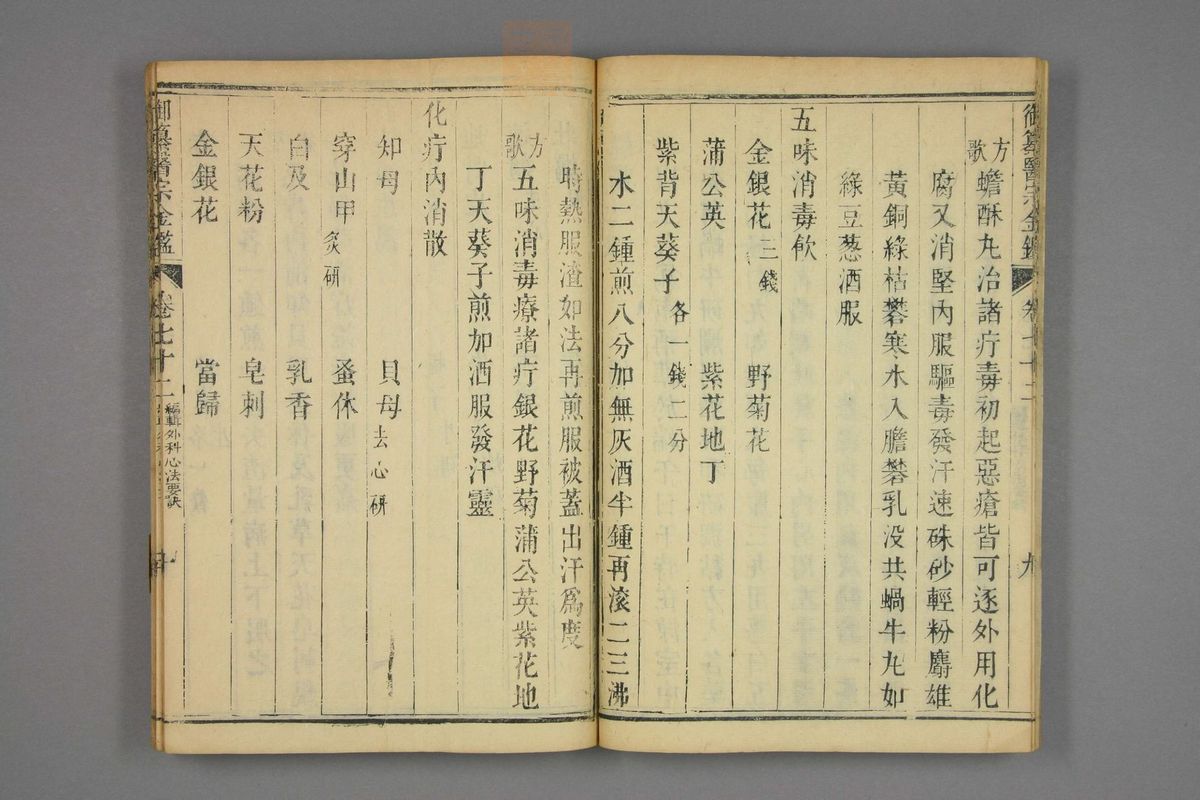 方歌 蟾酥丸治諸疔毒初起惡瘡皆可逐外用化
腐又消堅內服驅毒發汗速硃砂輕粉麝雄
黃銅綠枯礬寒水入膽礬乳没共蝸牛丸如
綠豆葱酒服
五味消毒飲
金銀花三錢 野菊花
蒲公英 紫花地丁
紫背天葵子各一錢二分
水二鍾煎八分加無灰酒半鍾再滾二三沸
時熱服渣如法再煎服被蓋出汗爲度
方歌 五味消毒療諸疔銀花野菊蒲公英紫花地
丁天葵子煎加酒服發汗靈
化疔內消散
知母 貝母去心研
穿山甲炙研 蚤休
白及 乳香
天花粉 皂刺
金銀花 當歸
御纂醫宗金鑑 卷七十二 編輯外科心法要訣 十